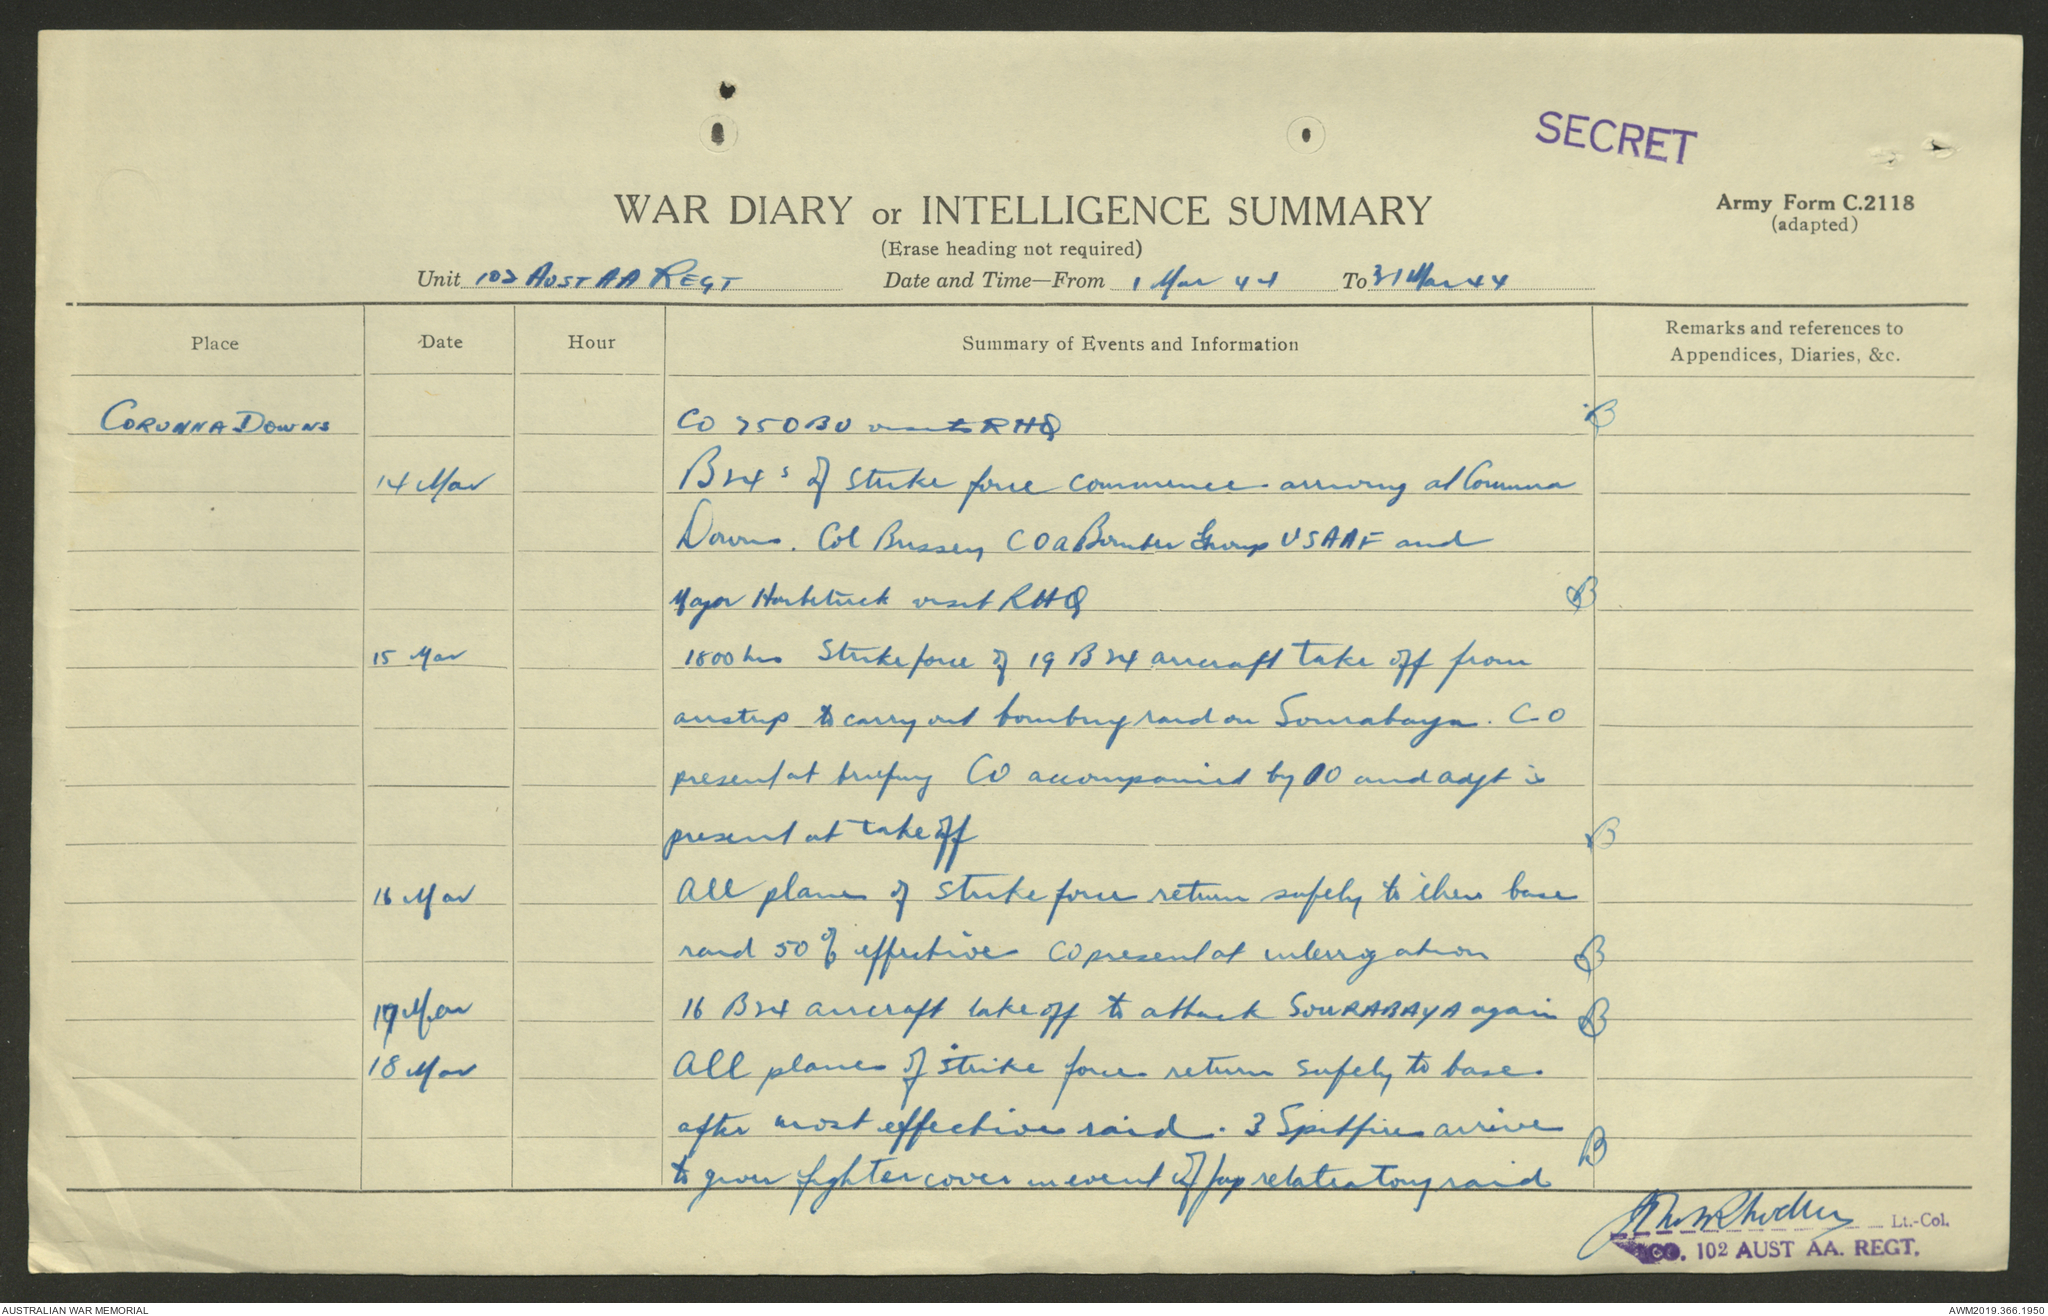 SECRET
WAR DIARY or INTELLIGENCE SUMMARY
Army Form C.2118
(Erase heading not required)
(adapted)
Unit 102 AUST AA REGT Date and Time—From 1 Mar 44 To 31 Mar 44
Place Date Hour Summary of Events and Information Remarks and references to
Appendices, Diaries, &c.
CORUNNA DOWNS CO 75OBU visits RHQ B
14 Mar B24s of strike force commence arriving at Corunna
Downs. Col Bussey CO a Bomber Group USAAF and
Major visit RHQ B
15 Mar 1800 hrs Strike force of 19 B24 aircraft take off from
airstrip to carry out bombing raid on Sourabaya. CO
present at briefing CO accompanied by IO and adjt is
present at take off B
16 Mar All planes of strike force return safely to their base
raid 50% effective CO present at interrogation B
17 Mar 16 B24 aircraft take off to attack SOURABAYA again B
18 Mar All planes of strike force return safely to base
after most effective raid. 3 Spitfires arrive B
to give fighter cover in event of Jap relatiatory raid
Lt.-Col.
CO. 102 AUST AA. REGT.
AUSTRALIAN WAR MEMORIAL AWM2019.366.1950